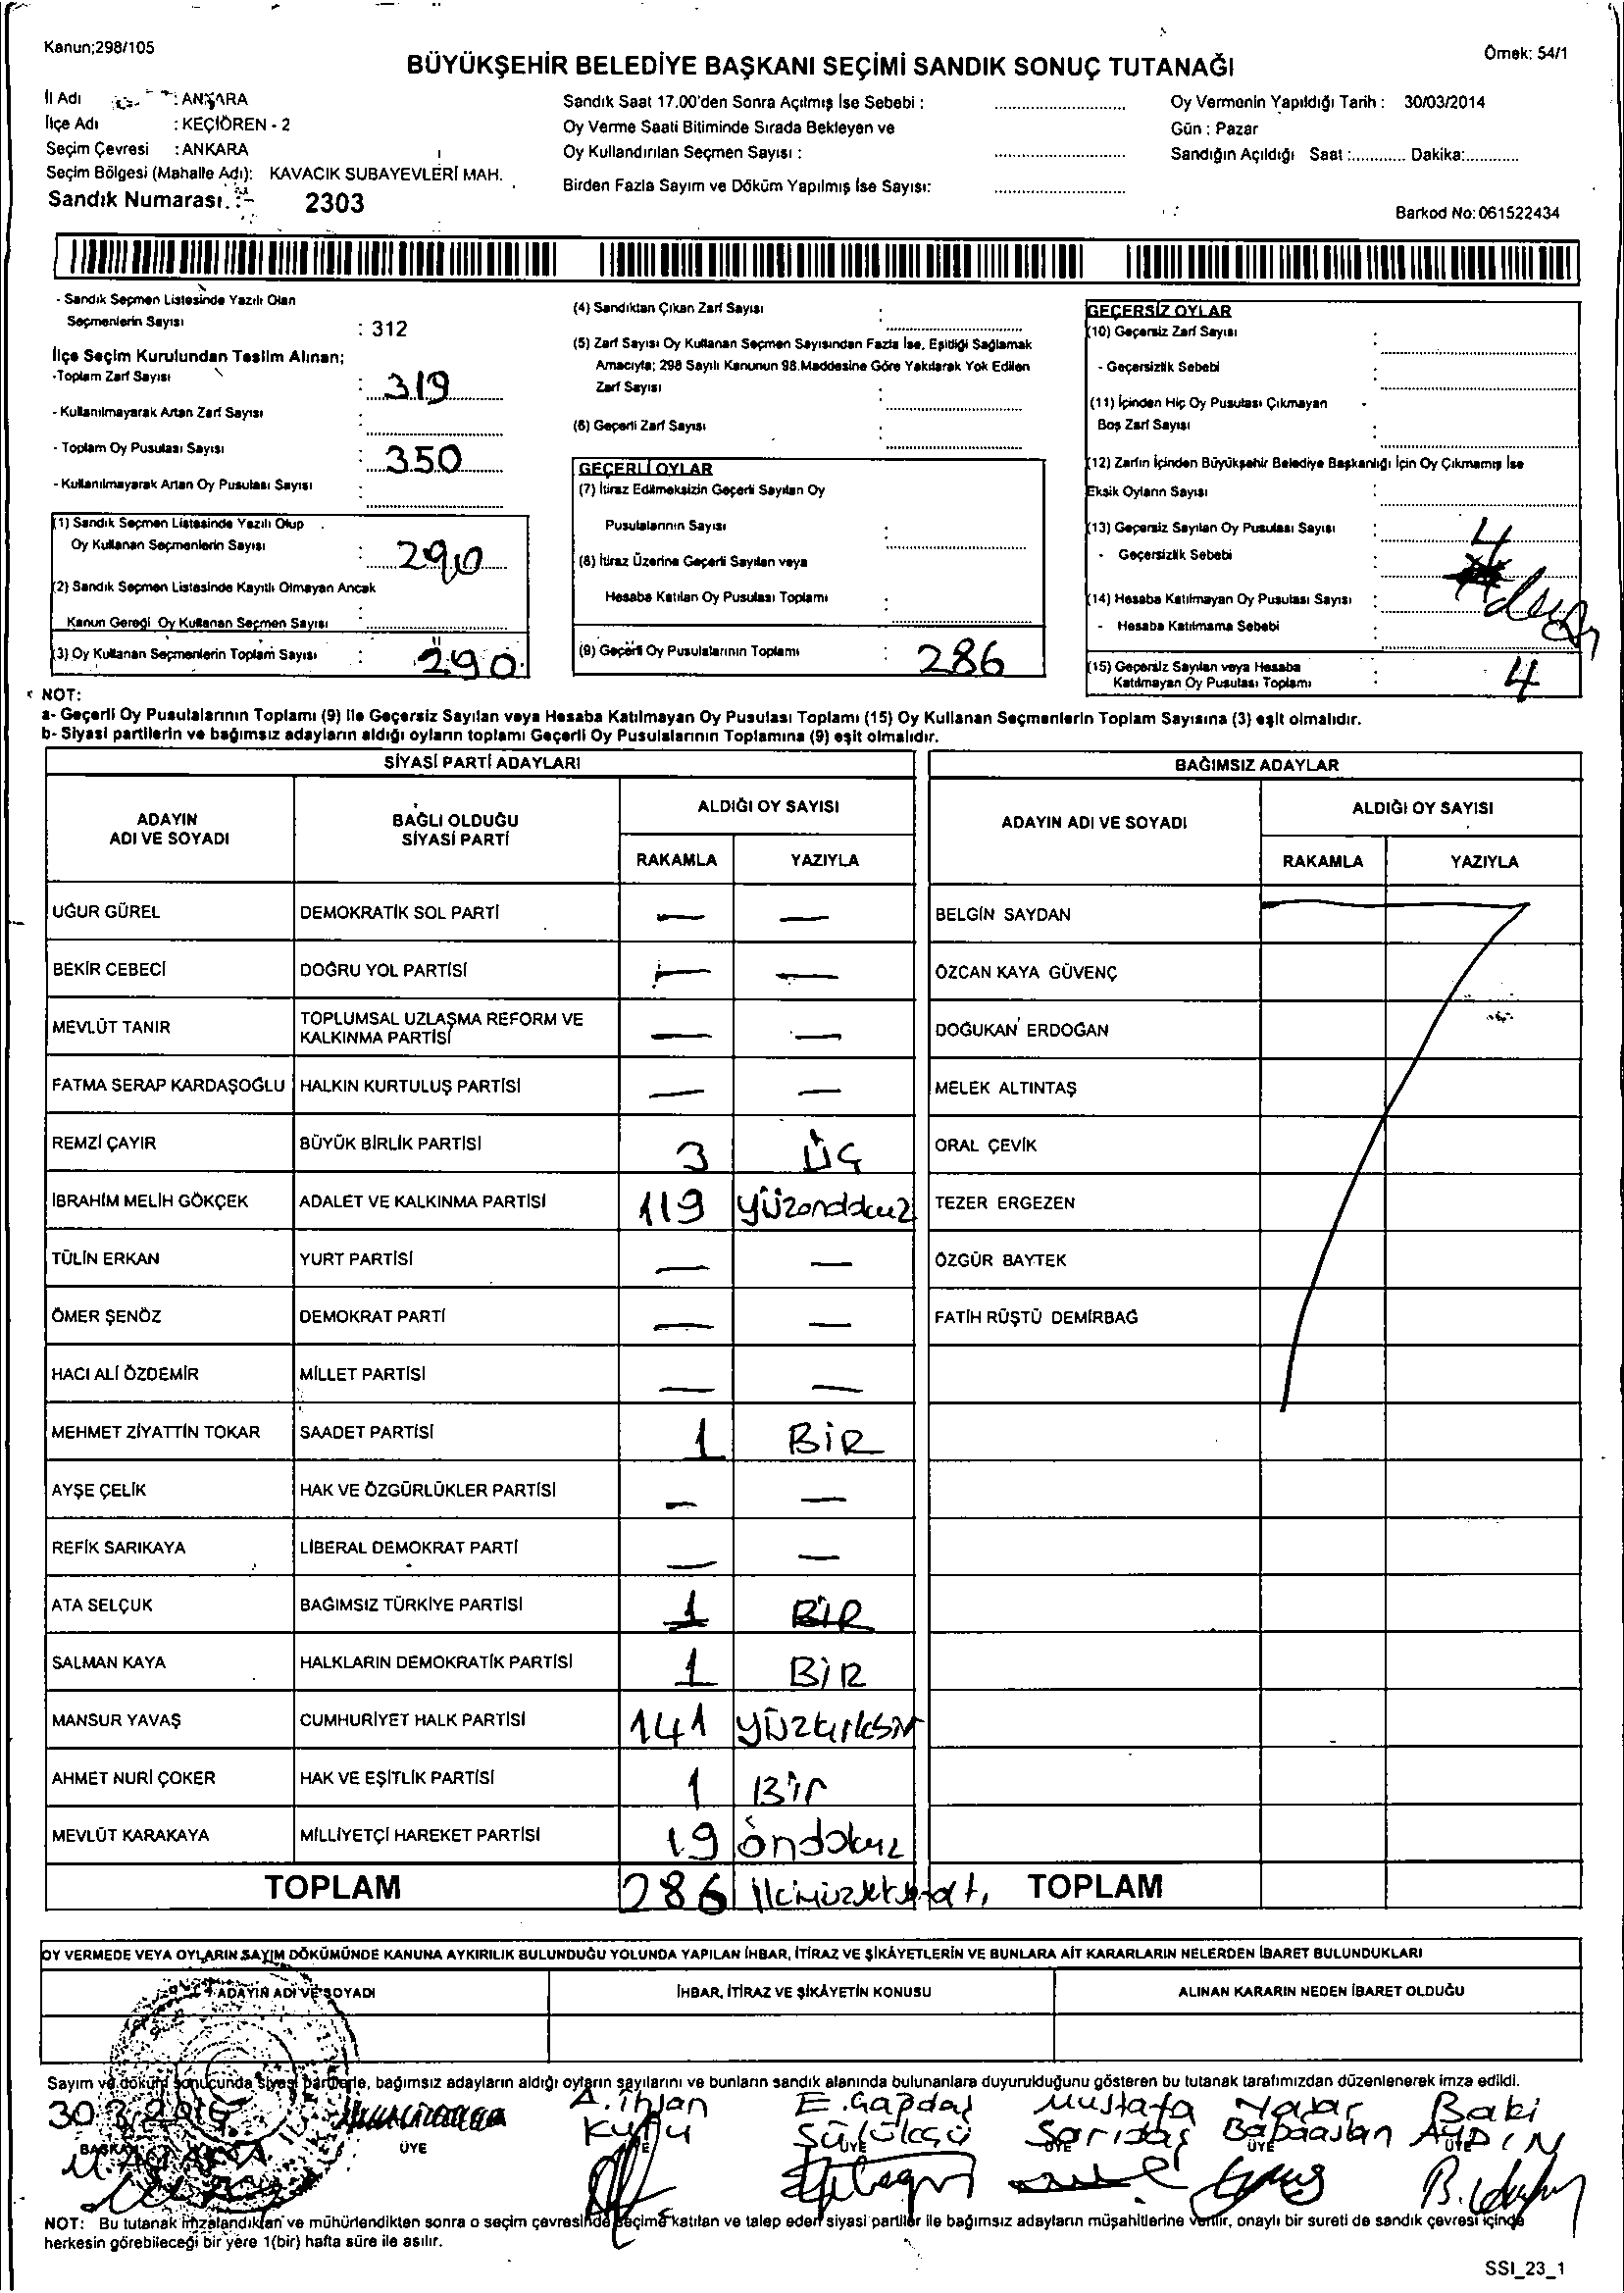 Kanun;298/105
Örnek: 54/1
BÜYÜKŞEHİR BELEDİYE BAŞKANI SEÇİMİ SANDIK SONUÇ TUTANAĞI
İl Adı : ANKARA
İlçe Adı : KEÇİÖREN - 2
Seçim Çevresi : ANKARA
Seçim Bölgesi (Mahalle Adı): KAVACIK SUBAYEVLERİ MAH.
Sandık Numarası : 2303
Sandık Saat 17.00'den Sonra Açılmış İse Sebebi :
Oy Verme Saati Bitiminde Sırada Bekleyen ve
Oy Kullandırılan Seçmen Sayısı :
Birden Fazla Sayım ve Döküm Yapılmış İse Sayısı:
Oy Vermenin Yapıldığı Tarih : 30/03/2014
Gün : Pazar
Sandığın Açıldığı Saat :............ Dakika:............
Barkod No: 061522434
- Sandık Seçmen Listesinde Yazılı Olan
Seçmenlerin Sayısı : 312
İlçe Seçim Kurulundan Teslim Alınan;
-Toplam Zarf Sayısı : 319
- Kullanılmayarak Artan Zarf Sayısı :
- Toplam Oy Pusulası Sayısı : 350
- Kullanılmayarak Artan Oy Pusulası Sayısı :
(1) Sandık Seçmen Listesinde Yazılı Olup
Oy Kullanan Seçmenlerin Sayısı : 290
(2) Sandık Seçmen Listesinde Kayıtlı Olmayan Ancak
Kanun Gereği Oy Kullanan Seçmen Sayısı :
(3) Oy Kullanan Seçmenlerin Toplam Sayısı : 290
(4) Sandıktan Çıkan Zarf Sayısı :
(5) Zarf Sayısı Oy Kullanan Seçmen Sayısından Fazla İse, Eşitliği Sağlamak
Amacıyla; 298 Sayılı Kanunun 98.Maddesine Göre Yakılarak Yok Edilen
Zarf Sayısı :
(6) Geçerli Zarf Sayısı :
GEÇERLİ OYLAR
(7) İtiraz Edilmeksizin Geçerli Sayılan Oy
Pusulalarının Sayısı :
(8) İtiraz Üzerine Geçerli Sayılan veya
Hesaba Katılan Oy Pusulası Toplamı :
(9) Geçerli Oy Pusulalarının Toplamı : 286
GEÇERSİZ OYLAR
(10) Geçersiz Zarf Sayısı :
- Geçersizlik Sebebi :
(11) İçinden Hiç Oy Pusulası Çıkmayan
Boş Zarf Sayısı :
(12) Zarfın İçinden Büyükşehir Belediye Başkanlığı İçin Oy Çıkmamış İse
Eksik Oyların Sayısı :
(13) Geçersiz Sayılan Oy Pusulası Sayısı : 4
- Geçersizlik Sebebi :
(14) Hesaba Katılmayan Oy Pusulası Sayısı :
- Hesaba Katılmama Sebebi :
(15) Geçersiz Sayılan veya Hesaba
Katılmayan Oy Pusulası Toplamı : 4
NOT:
a- Geçerli Oy Pusulalarının Toplamı (9) ile Geçersiz Sayılan veya Hesaba Katılmayan Oy Pusulası Toplamı (15) Oy Kullanan Seçmenlerin Toplam Sayısına (3) eşit olmalıdır.
b- Siyasi partilerin ve bağımsız adayların aldığı oyların toplamı Geçerli Oy Pusulalarının Toplamına (9) eşit olmalıdır.
SİYASİ PARTİ ADAYLARI
ADAYIN
ADI VE SOYADI
BAĞLI OLDUĞU
SİYASİ PARTİ
ALDIĞI OY SAYISI
RAKAMLA YAZIYLA
UĞUR GÜREL DEMOKRATİK SOL PARTİ — —
BEKİR CEBECİ DOĞRU YOL PARTİSİ — —
MEVLÜT TANIR TOPLUMSAL UZLAŞMA REFORM VE
KALKINMA PARTİSİ — —
FATMA SERAP KARDAŞOĞLU HALKIN KURTULUŞ PARTİSİ — —
REMZİ ÇAYIR BÜYÜK BİRLİK PARTİSİ 3 ÜÇ
İBRAHİM MELİH GÖKÇEK ADALET VE KALKINMA PARTİSİ 119 yüzondokuz
TÜLİN ERKAN YURT PARTİSİ — —
ÖMER ŞENÖZ DEMOKRAT PARTİ — —
HACI ALİ ÖZDEMİR MİLLET PARTİSİ — —
MEHMET ZİYATTİN TOKAR SAADET PARTİSİ 1 BİR
AYŞE ÇELİK HAK VE ÖZGÜRLÜKLER PARTİSİ — —
REFİK SARIKAYA LİBERAL DEMOKRAT PARTİ — —
ATA SELÇUK BAĞIMSIZ TÜRKİYE PARTİSİ 1 BİR
SALMAN KAYA HALKLARIN DEMOKRATİK PARTİSİ 1 BİR
MANSUR YAVAŞ CUMHURİYET HALK PARTİSİ 141 yüzkırkbir
AHMET NURİ ÇOKER HAK VE EŞİTLİK PARTİSİ 1 Bir
MEVLÜT KARAKAYA MİLLİYETÇİ HAREKET PARTİSİ 19 ondokuz
TOPLAM 286
BAĞIMSIZ ADAYLAR
ADAYIN ADI VE SOYADI
ALDIĞI OY SAYISI
RAKAMLA YAZIYLA
BELGİN SAYDAN
ÖZCAN KAYA GÜVENÇ
DOĞUKAN ERDOĞAN
MELEK ALTINTAŞ
ORAL ÇEVİK
TEZER ERGEZEN
ÖZGÜR BAYTEK
FATİH RÜŞTÜ DEMİRBAĞ
TOPLAM
OY VERMEDE VEYA OYLARIN SAYIM DÖKÜMÜNDE KANUNA AYKIRILIK BULUNDUĞU YOLUNDA YAPILAN İHBAR, İTİRAZ VE ŞİKÂYETLERİN VE BUNLARA AİT KARARLARIN NELERDEN İBARET BULUNDUKLARI
ADAYIN ADI VE SOYADI
İHBAR, İTİRAZ VE ŞİKÂYETİN KONUSU
ALINAN KARARIN NEDEN İBARET OLDUĞU
Sayım ve döküm sonucunda siyasi partilerle, bağımsız adayların aldığı oyların sayılarını ve bunların sandık alanında bulunanlara duyurulduğunu gösteren bu tutanak tarafımızdan düzenlenerek imza edildi.
A. İhsan Mustafa Yaşar Baki
Babaaslan AYDIN
BAŞKAN ÜYE ÜYE ÜYE ÜYE ÜYE ÜYE
NOT: Bu tutanak imzalandıktan ve mühürlendikten sonra o seçim çevresinde seçime katılan ve talep eden siyasi partiler ile bağımsız adayların müşahitlerine verilir, onaylı bir sureti de sandık çevresi içinde
herkesin görebileceği bir yere 1(bir) hafta süre ile asılır.
SSI_23_1